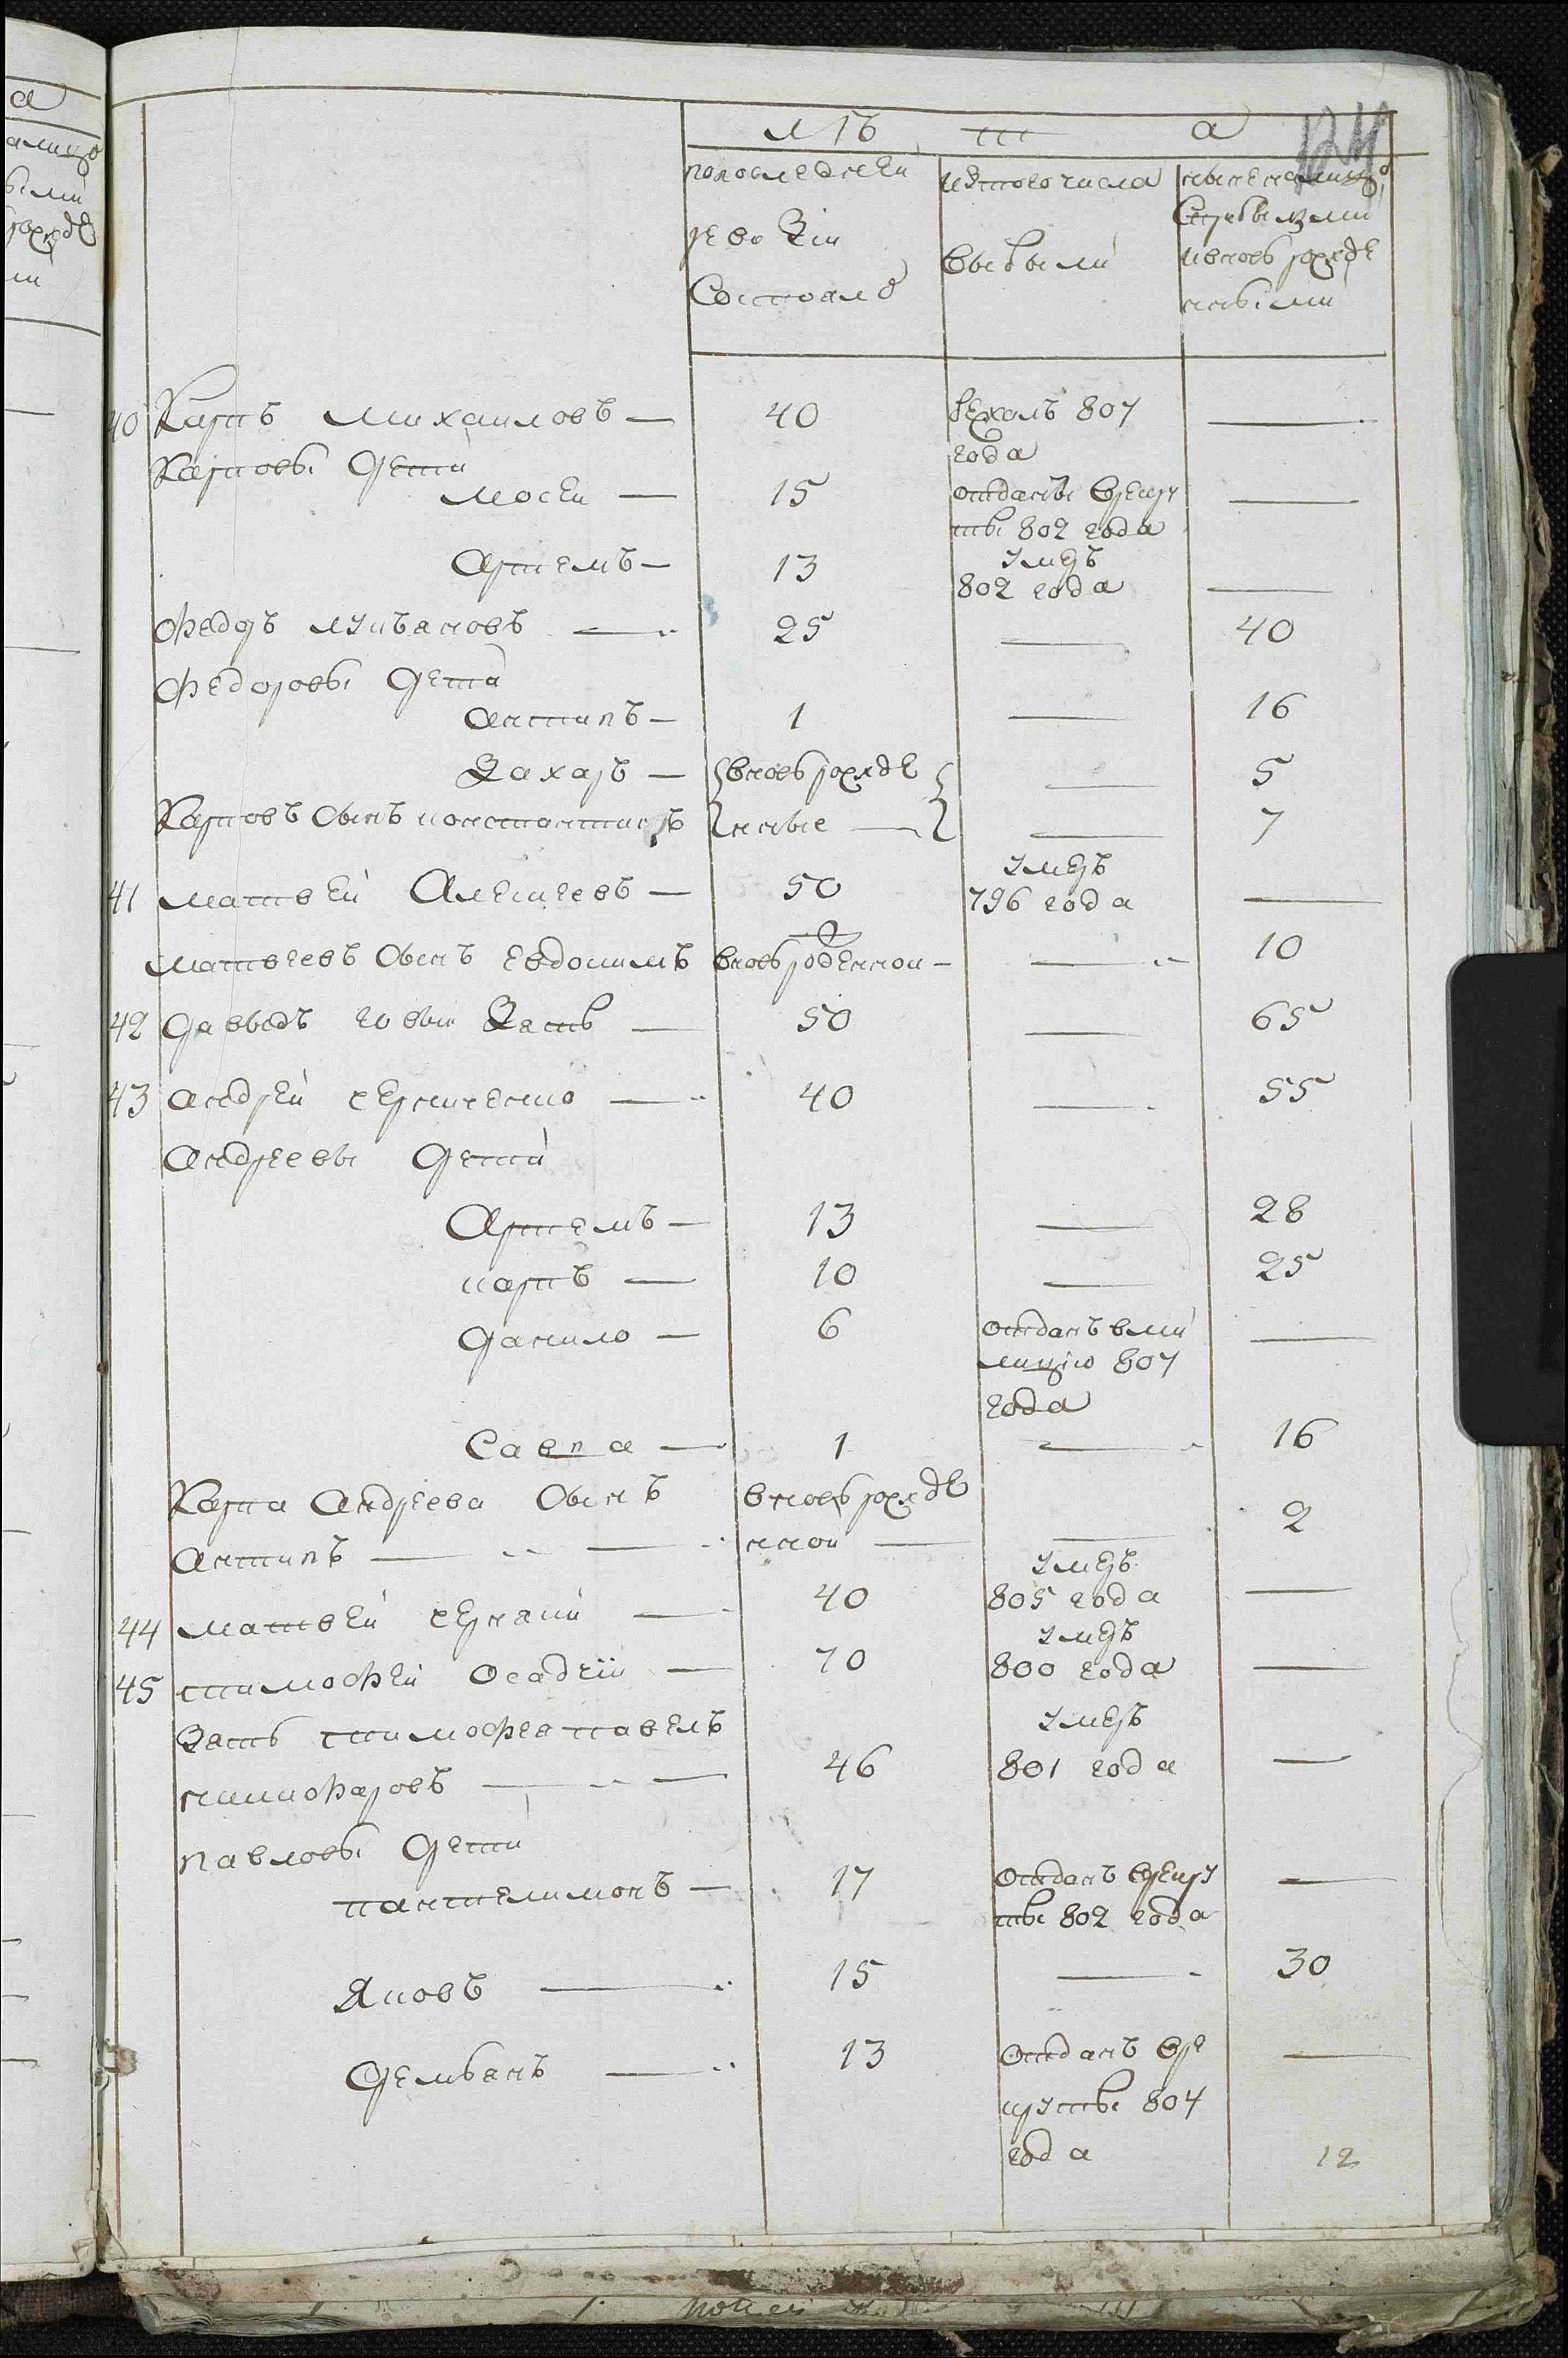 лѣ т а
попоследнеи
ревизіи
Состоялъ
изтого числа
выбыли
нынѣ налицо
Сприбылыми
ивновь рожде
нными
40 Карпъ Михаиловъ — 40 бежалъ 807 —
года
Карповы Дети
Мосеи — 15 отданъ врекру —
ты 802 года
Артемъ — 13 умеръ
802 года —
Федоръ лукъяновъ — 25 — 40
Федоровы Дети
антипъ — 1 — 16
Захаръ — вновь рожде — 5
Карповъ Сынъ константинъ нные — — 7
41 матвеи Алексеевъ — 50 умеръ
796 года —
матвеевъ Сынъ евдокимъ вновь роденнои — — 10
42 Давыдъ Зять — 50 — 65
43 андреи черниченко — 40 — 55
андреевы Дети
Артемъ — 13 — 28
карпъ — 10 — 25
Данило — 6 отданъ вми —
лицію 807
года
Савпа — 1 — 16
Карпа андреева Сынъ вновь рожде
антипъ — — ннои — — 2
44 матвеи чернаки — 40 умеръ
805 года —
45 тимофеи Осадчїи — 70 умеръ
800 года —
Зять тимофея павелъ умеръ
никифаровъ — — 46 801 года —
павловы Дети
пантелимонъ — 17 Отданъ врекру —
ты 802 года
Яковъ — 15 — 30
Демьянъ — 13 Отданъ вре —
круты 804
года
12